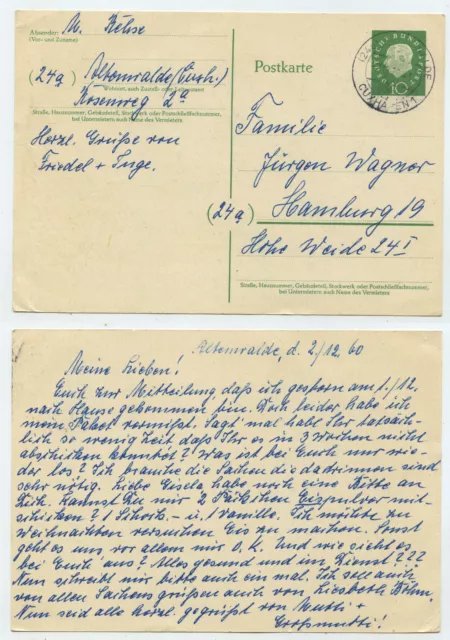 Absender: M. Rehse
(Vor- und Zuname)
(24a) Altenwalde/Cuxh.
Wohnort, auch Zustell- oder Leitpostamt
Rosenweg 2a
Straße, Hausnummer, Gebäudeteil, Stockwerk oder Postschließfachnummer,
bei Untermietern auch Name des Vermieters
Herzl. Grüße von
Friedel + Inge.
Postkarte
DEUTSCHE BUNDESPOST
10
CUXHAVEN 1
Familie
Jürgen Wagner
(24a) Hamburg 19
Hohe Weide 24 I
Straße, Hausnummer, Gebäudeteil, Stockwerk oder Postschließfachnummer,
bei Untermietern auch Name des Vermieters
Altenwalde, d. 2./12. 60
Meine Lieben!
Euch zur Mitteilung, daß ich gestern am 1./12.
nach Hause gekommen bin. Doch leider habe ich
mein Paket vermißt. Sagt mal habt Ihr tatsäch-
lich so wenig Zeit daß Ihr es in 3 Wochen nicht
abschicken konntet? Was ist bei Euch nur wie-
der los? Ich brauche die Sachen die da drinnen sind
sehr nötig. Liebe Gisela habe noch eine Bitte an
Dich. Kannst Du mir 2 Päckchen Eispulver mit-
schicken? 1 Schok.- u. 1 Vanille. Ich möchte zu
Weihnachten versuchen Eis zu machen. Sonst
geht es uns vor allem mir O.K. Und wie sieht es
bei Euch aus? Alles gesund und im Dienst???
Nun schreibt mir bitte auch ein mal. Ich soll auch
von allen Sachens grüßen auch von Liesbeth Böhm.
Nun seid alle herzl. gegrüßt von Mutti +
Großmutti!